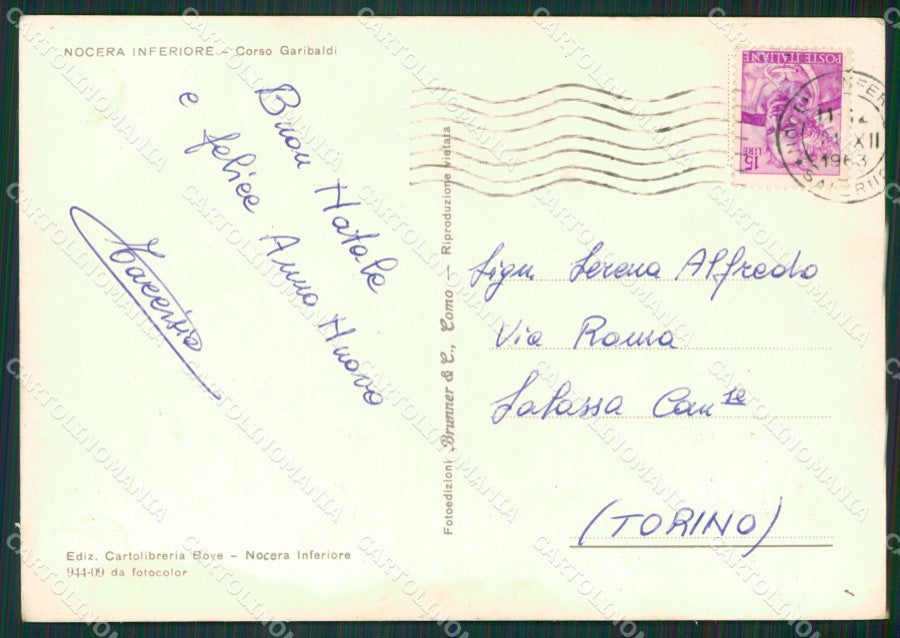 NOCERA INFERIORE - Corso Garibaldi
Buon Natale
e felice Anno Nuovo
Fotoedizioni Brunner & C., Como - Riproduzione vietata
POSTE ITALIANE
LIRE 15
11-12
XII
1963
(SALERNO)
Sign. Serena Alfredo
Via Roma
Salassa Can.se
(TORINO)
Ediz. Cartolibreria Bove - Nocera Inferiore
944-09 da fotocolor
CARTOLINOMANIA